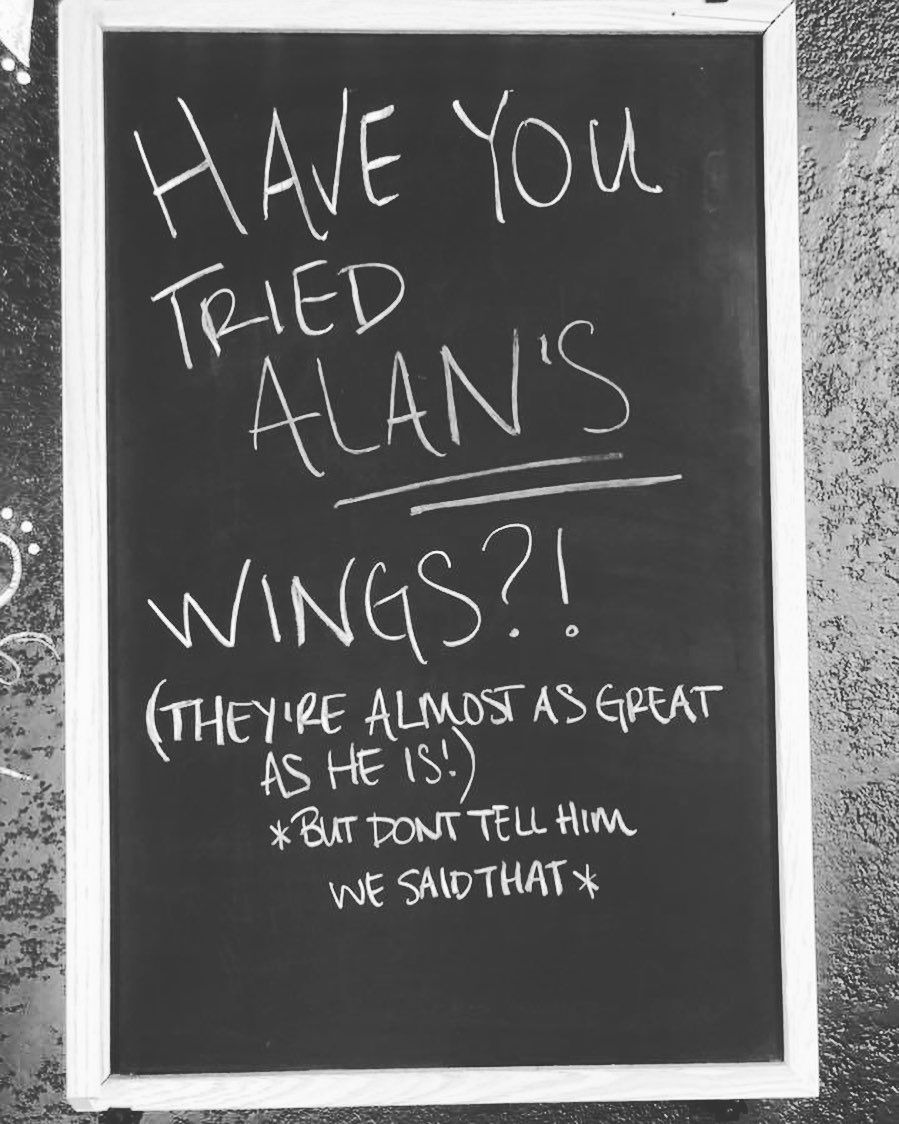 HAVE YOU
TRIED
ALAN'S
WINGS?!
(THEY'RE ALMOST AS GREAT
AS HE IS!)
*BUT DONT TELL HIM
WE SAID THAT*